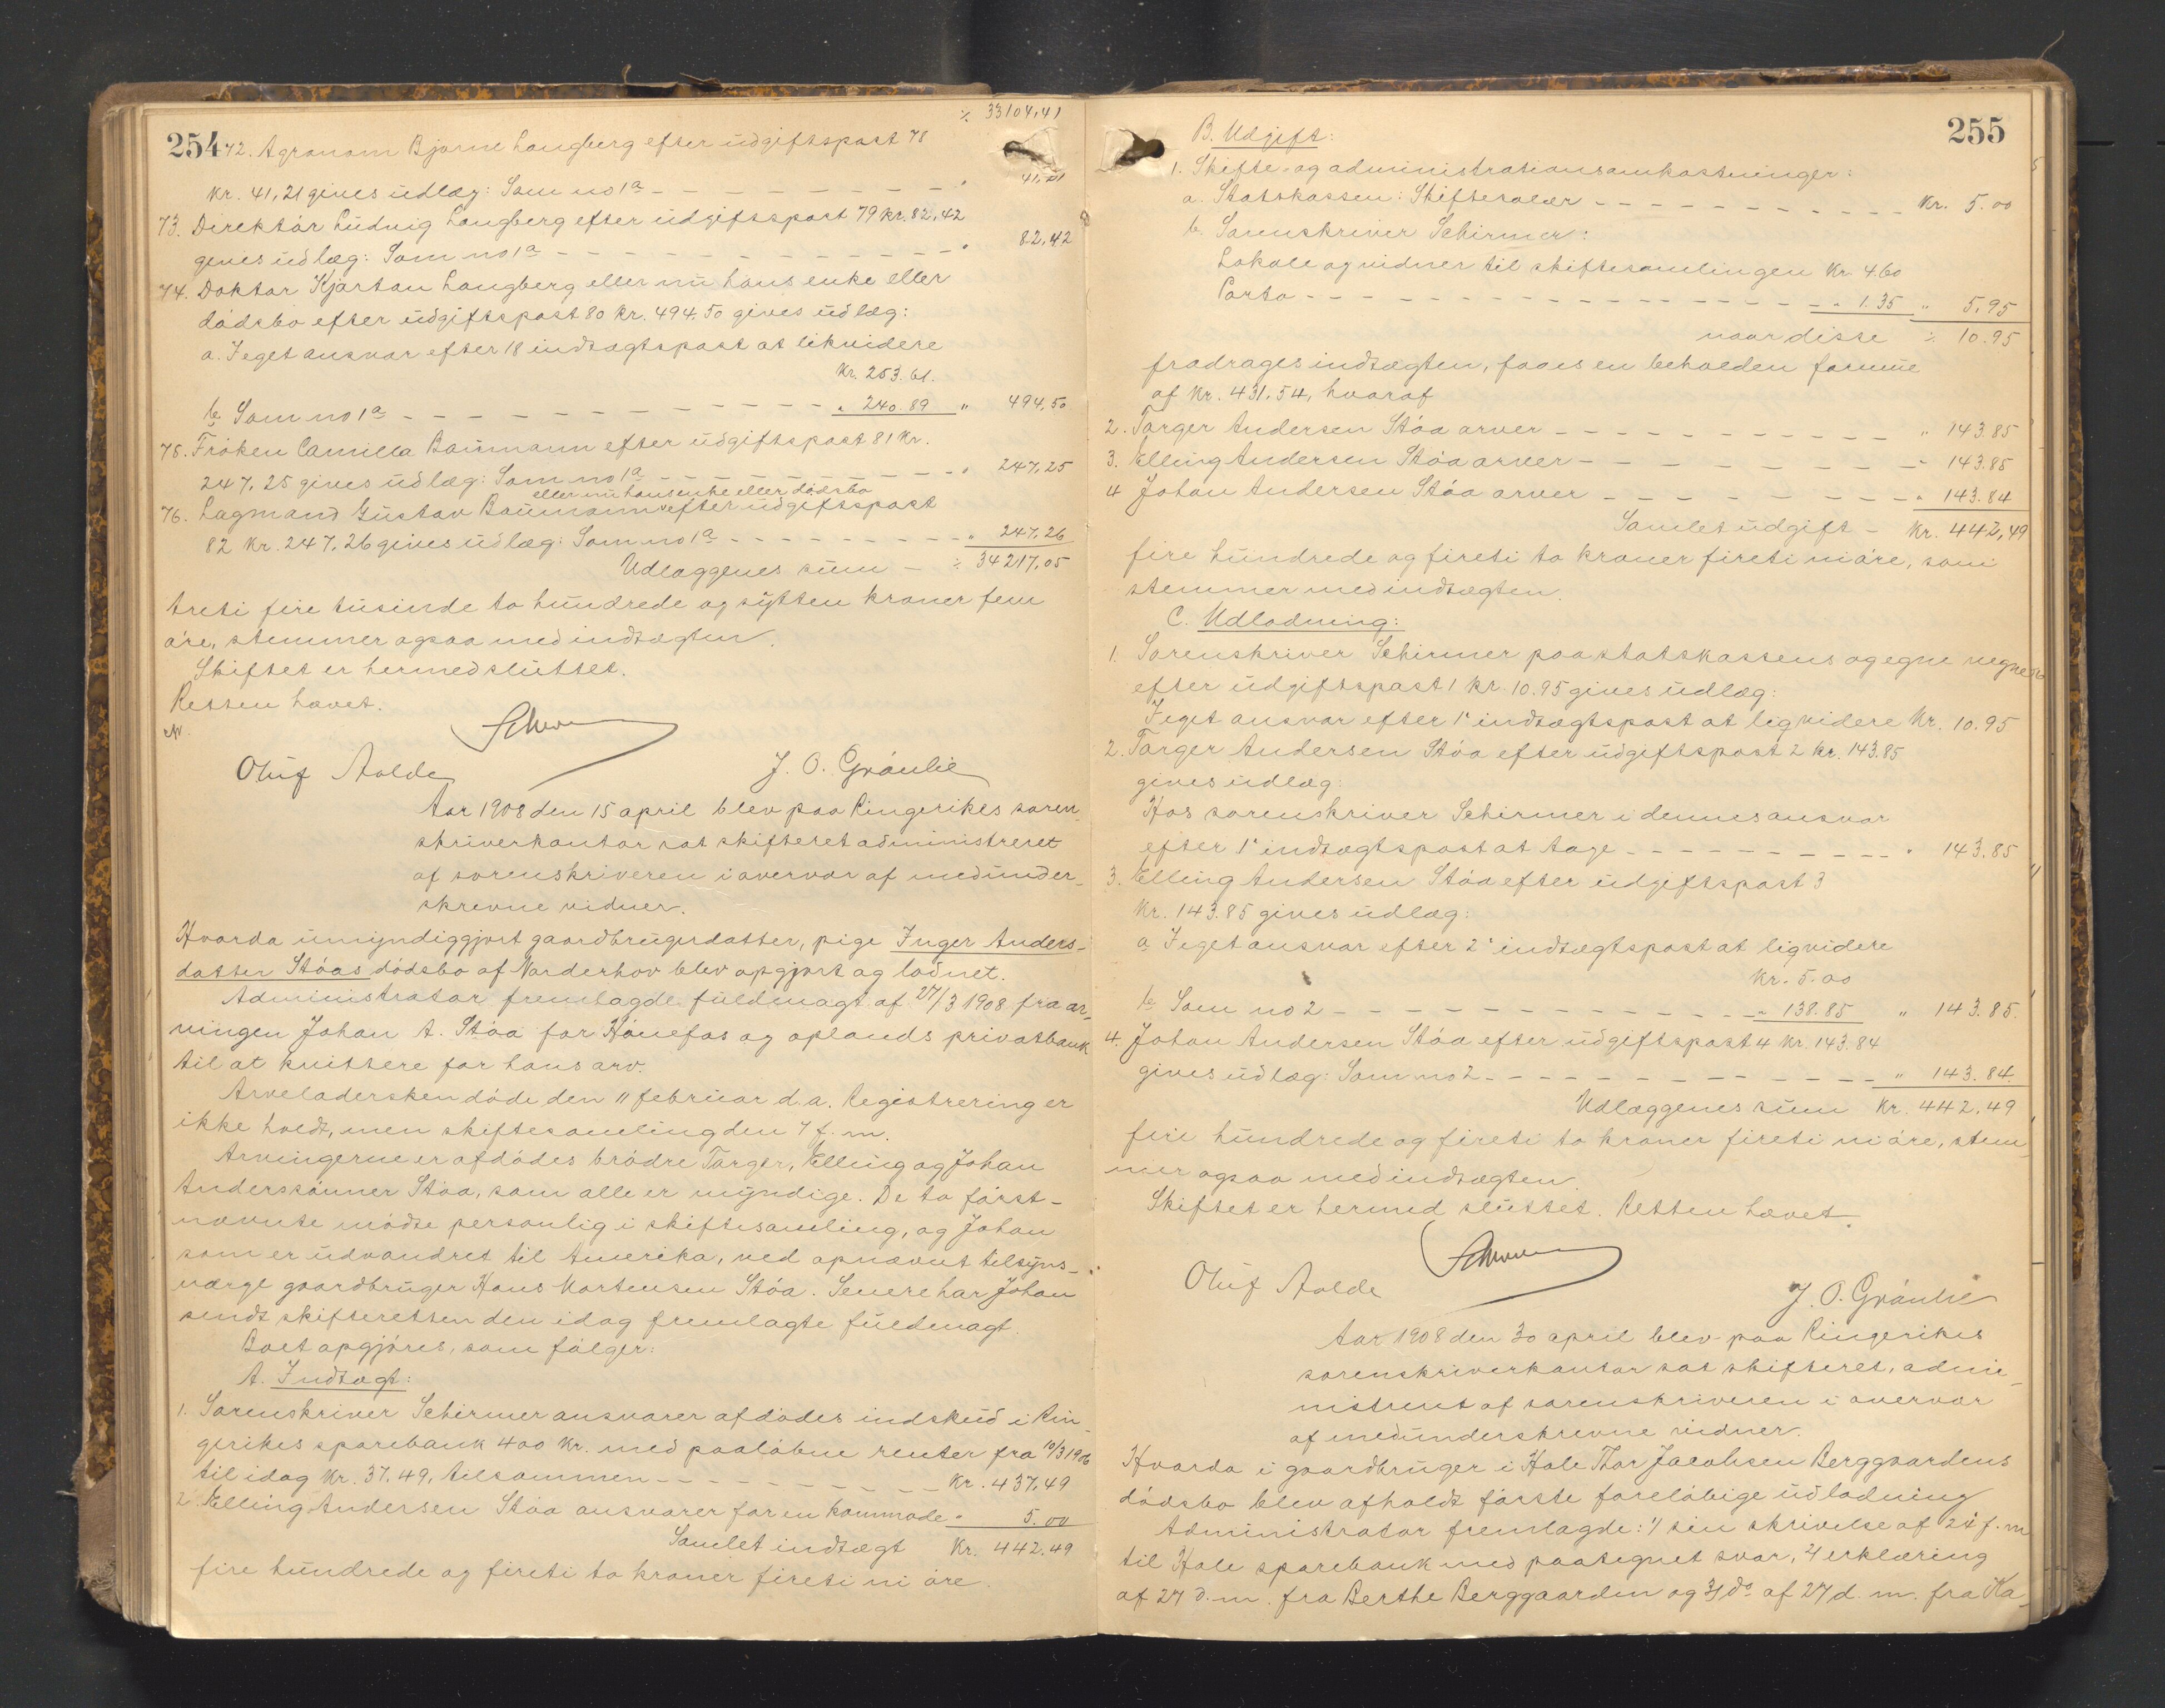 254
÷ 33104,41
72. Agronom Bjarne Langberg efter udgiftspost 78
kr. 41,21 gives udlæg: Som no 1a - - - - - - - - - " 41,21
73. Direktør Ludvig Langberg efter udgiftspost 79 kr. 82,42
gives udlæg: Som no 1a - - - - - - - - - - - " 82,42
74. Doktor Kjartan Langberg eller nu hans enke eller
dødsbo efter udgiftspost 80 kr. 494.50 gives udlæg:
a. I eget ansvar efter 18 indtægtspost at likvidere
Kr. 253.61.
b. Som no 1a - - - - - - - - - - - - " 240.89 " 494,50
75. Frøken Camilla Baumann efter udgiftspost 81 kr.
247,25 gives udlæg: Som no 1a - - - - - - - - " 247,25
eller nu hans enke eller dødsbo
76. Lagmand Gustav Baumann efter udgiftspost
82 kr. 247,26 gives udlæg: Som no 1a - - - - - - - - " 247,26
Udlæggenes sum - ÷ 34217,05
treti fire tusinde to hundrede og sytten kroner fem
øre, stemmer ogsaa med indtægten.
Skiftet er hermed sluttet.
Retten hævet.
Schirmer
Oluf Aalde J. O. Grønlie
Aar 1908 den 15 april blev paa Ringerikes soren-
skriverkontor sat skifteret administreret
af sorenskriveren i overvær af medunder-
skrevne vidner.
Hvorda umyndiggjort gaardbrugerdatter, pige Inger Anders-
datter Støas dødsbo af Norderhov blev opgjort og lodnet.
Administrator fremlagde fuldmagt af 27/3 1908 fra ar-
vingen Johan A. Støa for Hønefos og oplands privatbank
til at kvittere for hans arv.
Arveladersken døde den 11 februar d. a. Registrering er
ikke holdt, men skiftesamling den 7 f. m.
Arvingerne er afdødes brødre Torger, Elling og Johan
Anderssønner Støa, som alle er myndige. De to først-
nævnte mødte personlig i skiftesamling, og Johan
som er udvandret til Amerika, ved opnævnt tilsyns-
værge gaardbruger Hans Mortensen Støa. Senere har Johan
sendt skifteretten den idag fremlagte fuldmagt.
Boet opgjøres, som følger:
A. Indtægt:
1. Sorenskriver Schirmer ansvarer afdødes indskud i Rin-
gerikes sparebank 400 kr. med paaløbne renter fra 10/3 1906
til idag kr. 37.49, tilsammen - - - - - - - - - Kr. 437,49
2. Elling Andersen Støa ansvarer for en kommode " 5.00
Samlet indtægt Kr. 442.49
fire hundrede og fireti to kroner fireti ni øre.
255
B. Udgift:
1. Skifte- og administrationsomkostninger:
a. Statskassen: Skiftesalær - - - - - - - - - - - Kr. 5.00
b. Sorenskriver Schirmer:
Lokale og vidner til skiftesamlingen Kr. 4 60
Porto - - - - - - - - - - - - - - - - - " 1.35 " 5,95
naar disse ÷ 10.95
fradrages indtægten, faaes en beholden formue
af Kr. 431,54, hvoraf
2. Torger Andersen Støa arver - - - - - - - - - - - " 143.85
3. Elling Andersen Støa arver - - - - - - - - - " 143.85
4 Johan Andersen Støa arver - - - - - - - - - " 143.84
Samlet udgift - Kr. 442,49
fire hundrede og fireti to kroner fireti ni øre, som
stemmer med indtægten.
C. Udlodning:
1. Sorenskriver Schirmer paa statskassens og egne vegne
efter udgiftspost 1 kr. 10.95 gives udlæg:
I eget ansvar efter 1' indtægtspost at ligvidere Kr. 10.95
2. Torger Andersen Støa efter udgiftspost 2 kr. 143.85
gives udlæg:
Hos sorenskriver Schirmer i dennes ansvar
efter 1' indtægtspost at tage - - - - - - - - - - " 143.85
3. Elling Andersen Støa efter udgiftspost 3
Kr. 143.85 gives udlæg:
a, I eget ansvar efter 2' indtægtspost at ligvidere
Kr. 5.00
b, Som no 2 - - - - - - - - - - - - - " 138.85 " 143.85.
4. Johan Andersen Støa efter udgiftspost 4 Kr. 143.84
gives udlæg: Som no 2 - - - - - - - - - - - - - " 143.84
Udlæggenes sum Kr. 442,49
fire hundrede og fireti to kroner fireti ni øre, stem-
mer ogsaa med indtægten.
Skiftet er hermed sluttet. Retten hævet.
Schirmer
Oluf Aalde
J. O. Grønlie
Aar 1908 den 30 april blev paa Ringerikes
sorenskriverkontor sat skifteret, admi-
nistreret af sorenskriveren i overvær
af medunderskrevne vidner.
Hvorda i gaardbruger i Hole Thor Jacobsen Berggaardens
dødsbo blev afholdt første foreløbige udlodning
Administrator fremlagde: 1/ sin skrivelse af 24 f. m
til Hole sparebank med paategnet svar, 2/ erklæring
af 27 d. m. fra Berthe Berggaarden og 3/ do af 27 d. m. fra Ka-